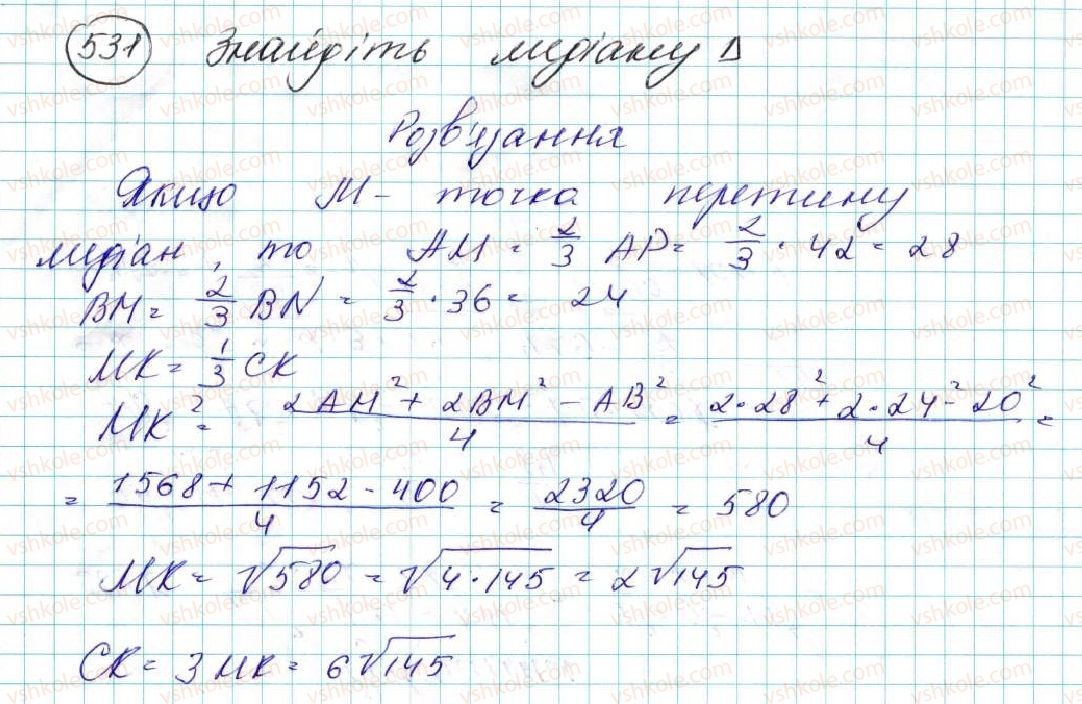 531 Знайдіть медіану Δ
Розв'язання
Якщо M - точка перетину
медіан, то AM = 2/3 AP = 2/3 · 42 = 28
BM = 2/3 BN = 2/3 · 36 = 24
MK = 1/3 CK
MK² = (2AM² + 2BM² - AB²)/4 = (2·28² + 2·24² - 20²)/4 =
= (1568 + 1152 - 400)/4 = 2320/4 = 580
MK = √580 = √(4·145) = 2√145
CK = 3MK = 6√145